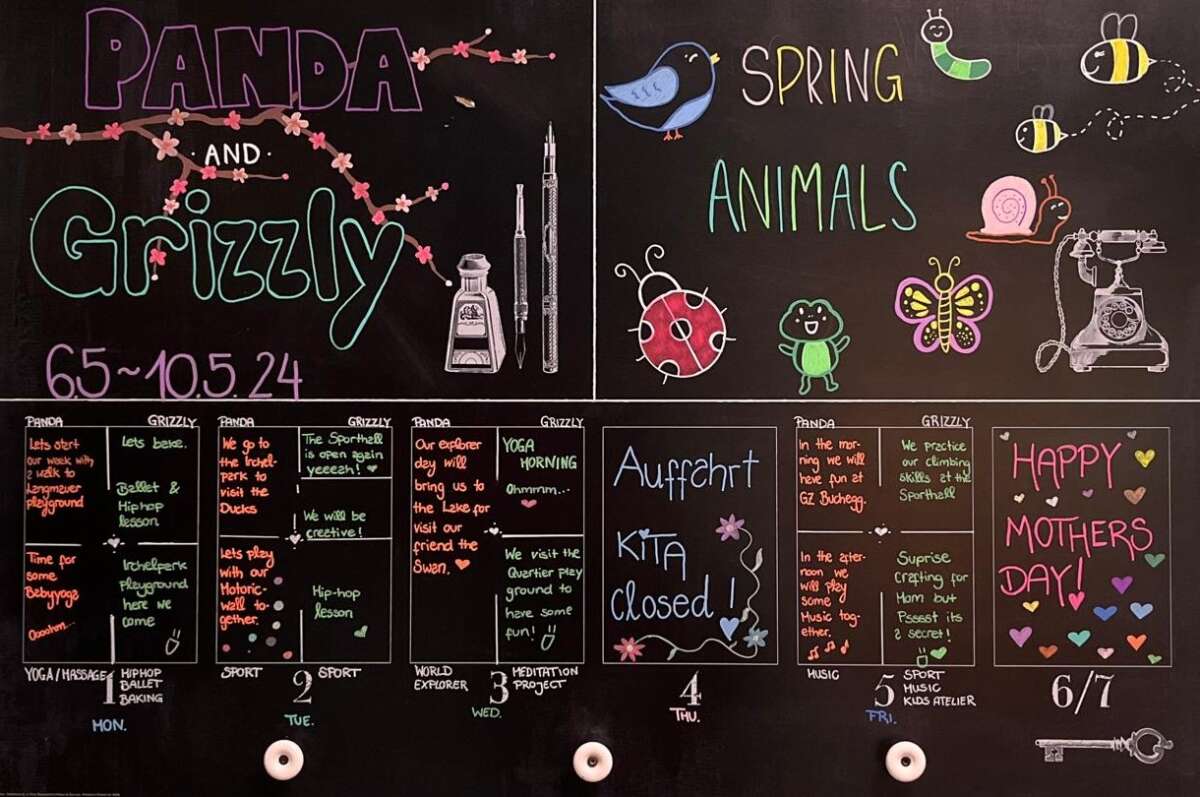 PANDA
· AND ·
Grizzly
6.5~10.5.24
SPRING
ANIMALS
PANDA
Lets start
our week with
a walk to
Langmauer
playground
Time for
some
Babyyoga
Ooohm...
YOGA/MASSAGE
GRIZZLY
Lets bake.
Ballet &
Hip hop
lesson
Irchelpark
Playground
here we
come
HIPHOP
BALLET
BAKING
1
MON.
PANDA
We go to
the Irchel-
park to
visit the
Ducks
Lets play
with our
Motoric-
wall to-
gether.
SPORT
GRIZZLY
The Sporthall
is open again
yeeeah!
We will be
creative!
Hip-hop
lesson
SPORT
2
TUE.
PANDA
Our explorer
day will
bring us to
the Lake for
visit our
friend the
Swan.
WORLD
EXPLORER
GRIZZLY
YOGA
MORNING
Ohmmm...
We visit the
Quartier play
ground to
have some
fun!
MEDITATION
PROJECT
3
WED.
Auffahrt
KiTA
closed!
4
THU.
PANDA
In the mor-
ning we will
have fun at
GZ Buchegg.
In the after-
noon we
will play
some
Music tog-
ether.
MUSIC
GRIZZLY
We practice
our climbing
skills at the
Sporthall
Suprise
Crafting for
Mom but
Psssst its
a secret!
SPORT
MUSIC
KIDS ATELIER
5
FRI.
HAPPY
MOTHERS
DAY!
6/7